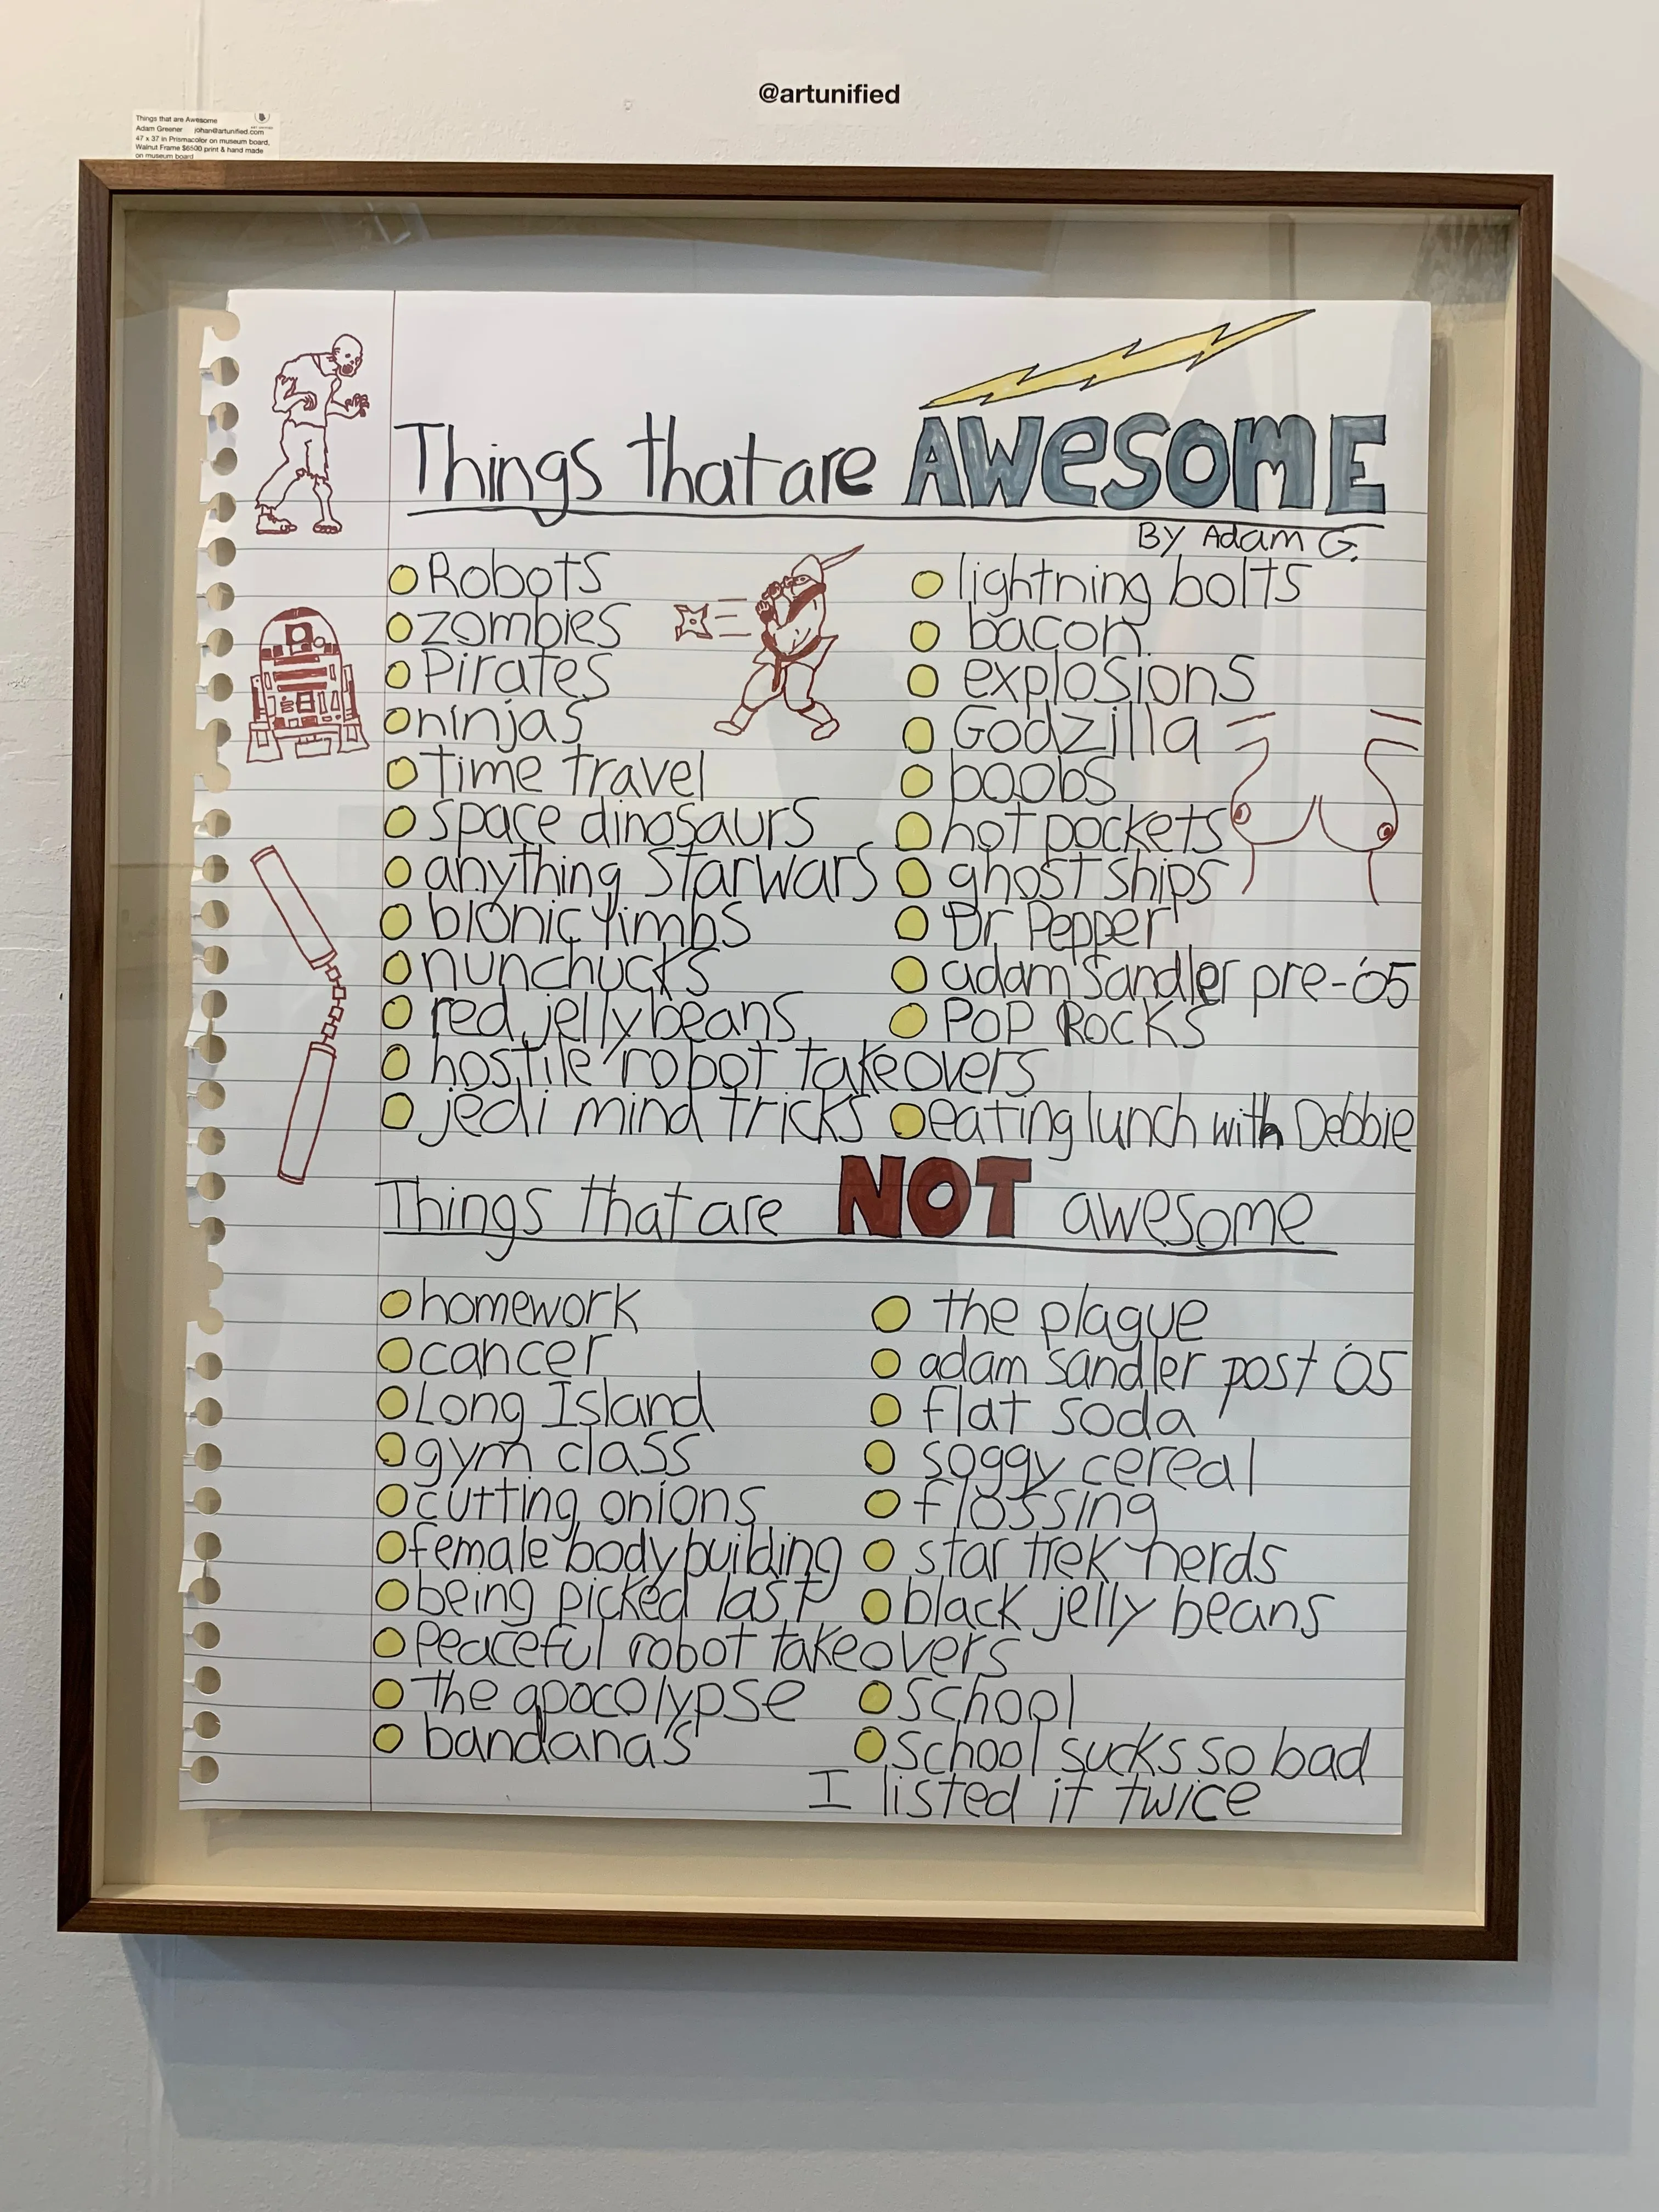 @artunified
Things that are Awesome
Adam Greener johan@artunified.com
47 x 37 in Prismacolor on museum board,
Walnut Frame $6500 print & hand made
on museum board
Things that are AWeSOME
By Adam G.
Robots
zombies
Pirates
ninjas
time travel
space dinosaurs
anything Starwars
bionic limbs
nunchucks
red jelly beans
hostile robot takeovers
jedi mind tricks
lightning bolts
bacon
explosions
Godzilla
boobs
hot pockets
ghost ships
Dr Pepper
adam sandler pre-'05
POP ROCKS
eating lunch with Debbie
Things that are NOT awesome
homework
cancer
Long Island
gym class
cutting onions
female body building
being picked last
Peaceful robot takeovers
the apocolypse
bandanas
the plague
adam sandler post '05
flat soda
soggy cereal
flossing
star trek nerds
black jelly beans
school
school sucks so bad
I listed it twice